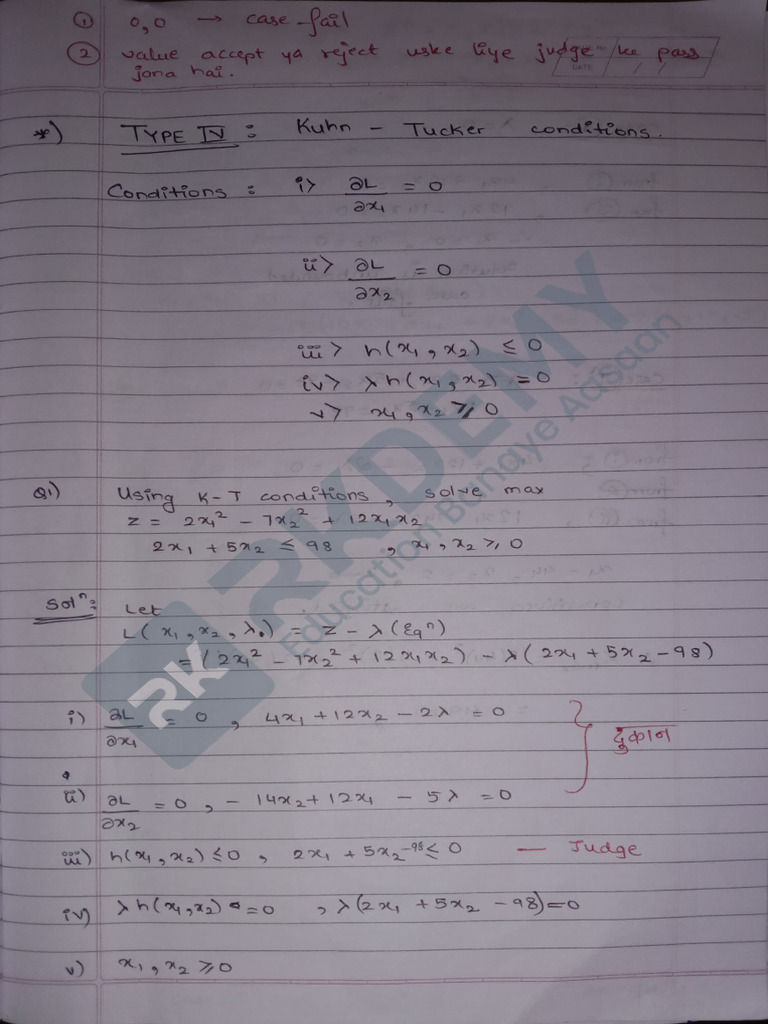 ① 0,0 → case fail
② value accept ya reject uske liye judge ke pass
jana hai.
DATE / /
*) TYPE IV : Kuhn - Tucker conditions.
Conditions : i> ∂L/∂x₁ = 0
ii> ∂L/∂x₂ = 0
iii> h(x₁, x₂) ≤ 0
iv> λh(x₁, x₂) = 0
v> x₁, x₂ ≥ 0
Q1) Using K-T conditions, solve max
z = 2x₁² - 7x₂² + 12x₁x₂
2x₁ + 5x₂ ≤ 98 , x₁, x₂ ≥ 0
Solⁿ: Let
L(x₁, x₂, λ) = z - λ(Eqⁿ)
= (2x₁² - 7x₂² + 12x₁x₂) - λ(2x₁ + 5x₂ - 98)
i) ∂L/∂x₁ = 0 , 4x₁ + 12x₂ - 2λ = 0
दुकान
ii) ∂L/∂x₂ = 0 , - 14x₂ + 12x₁ - 5λ = 0
iii) h(x₁, x₂) ≤ 0 , 2x₁ + 5x₂ - 98 ≤ 0 — Judge
iv) λh(x₁, x₂) = 0 , λ(2x₁ + 5x₂ - 98) = 0
v) x₁, x₂ ≥ 0
RK
RKDEMY
Education Banaye Aasaan